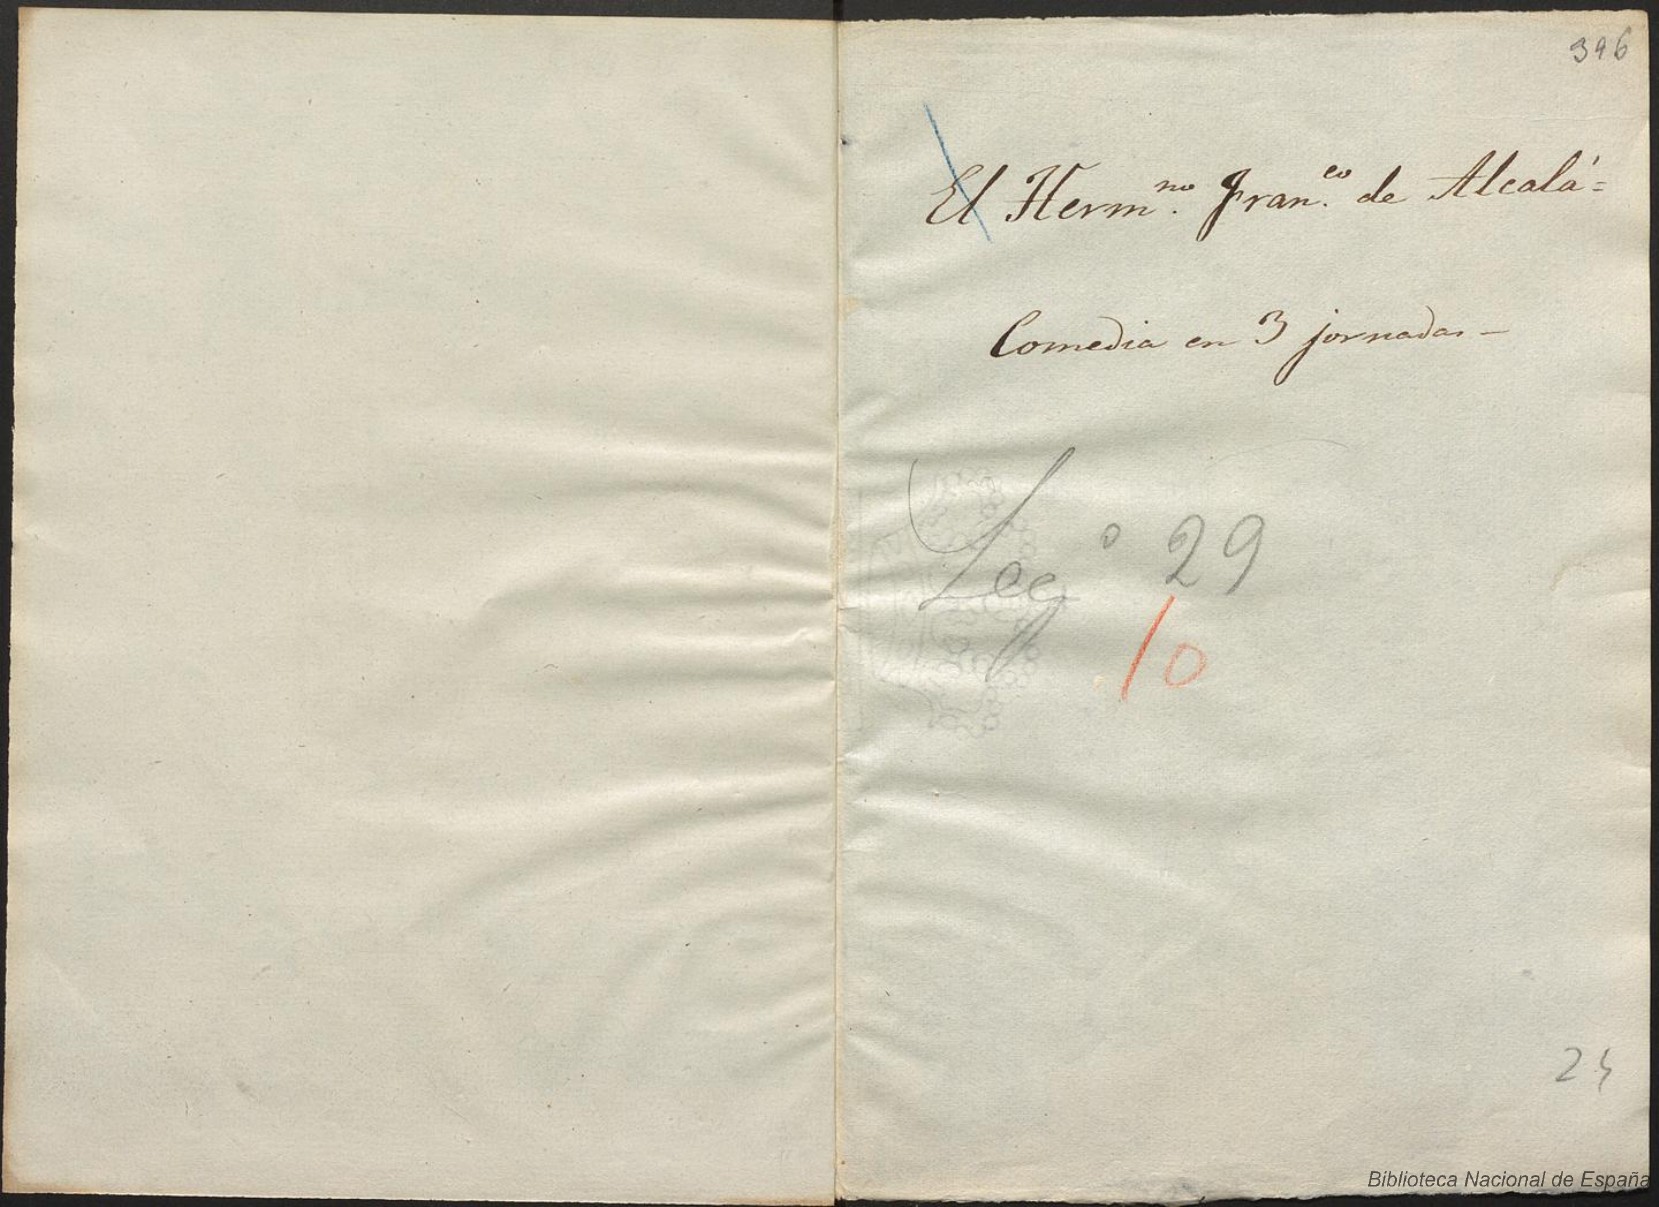 396
El Herm.no Fran.co de Alcalá=
Comedia en 3 jornadas—
Leg.o 29
10
Biblioteca Nacional de España